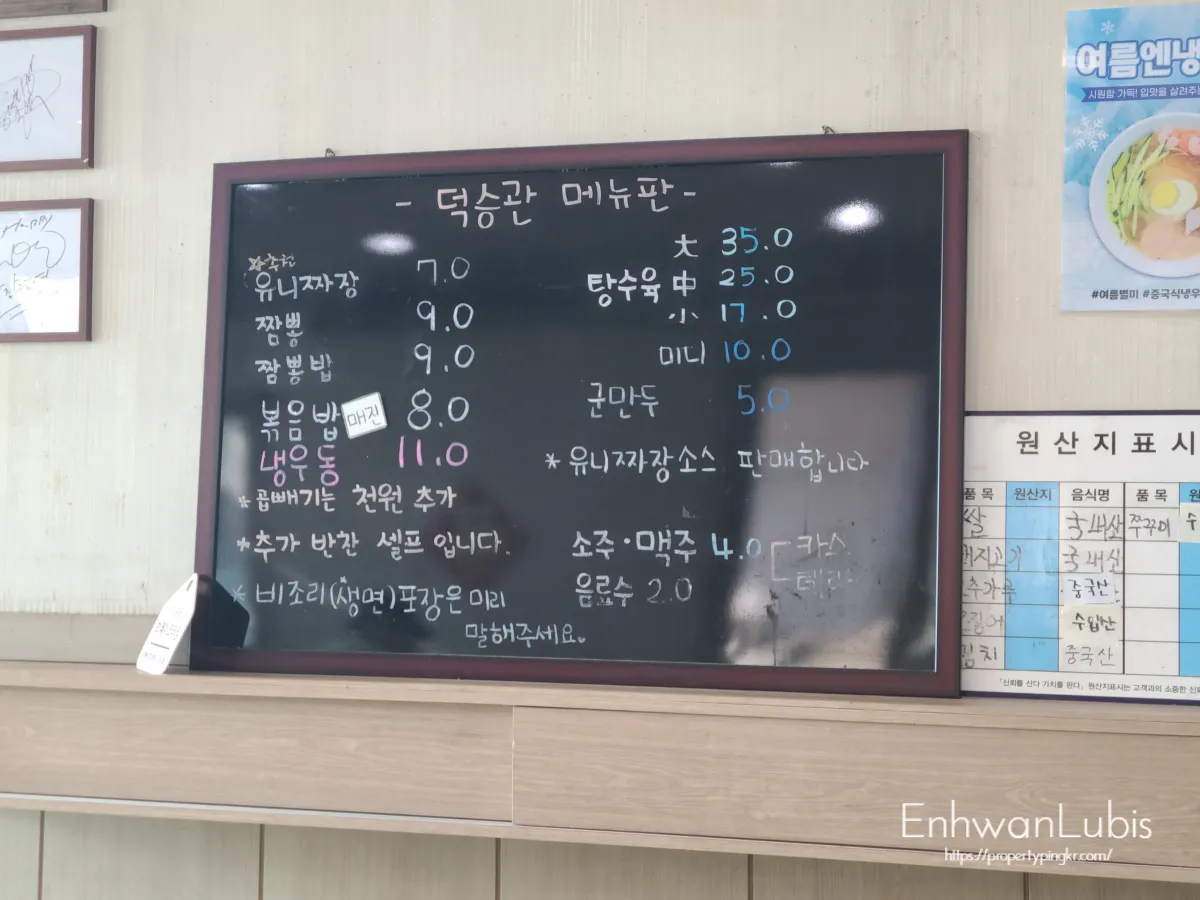 - 덕승관 메뉴판 -
강추천
유니짜장 7.0
짬뽕 9.0
짬뽕밥 9.0
볶음밥 매진 8.0
냉우동 11.0
* 곱빼기는 천원 추가
* 추가 반찬 셀프 입니다.
* 비조리(생면)포장은 미리
말해주세요.
大 35.0
탕수육 中 25.0
小 17.0
미디 10.0
군만두 5.0
* 유니짜장소스 판매합니다
소주·맥주 4.0 카스
테라
음료수 2.0
여름엔냉
시원함 가득! 입맛을 살려주는
#여름별미 #중국식냉우
원산지표시
품목 원산지 음식명 품목 원
쌀 국내산 쭈꾸미 수
돼지고기 국내산
고추가루 중국산
오징어 수입산
김치 중국산
「신뢰를 산다 가치를 판다」 원산지표시는 고객과의 소중한 신뢰
EnhwanLubis
https://propertypingkr.com/